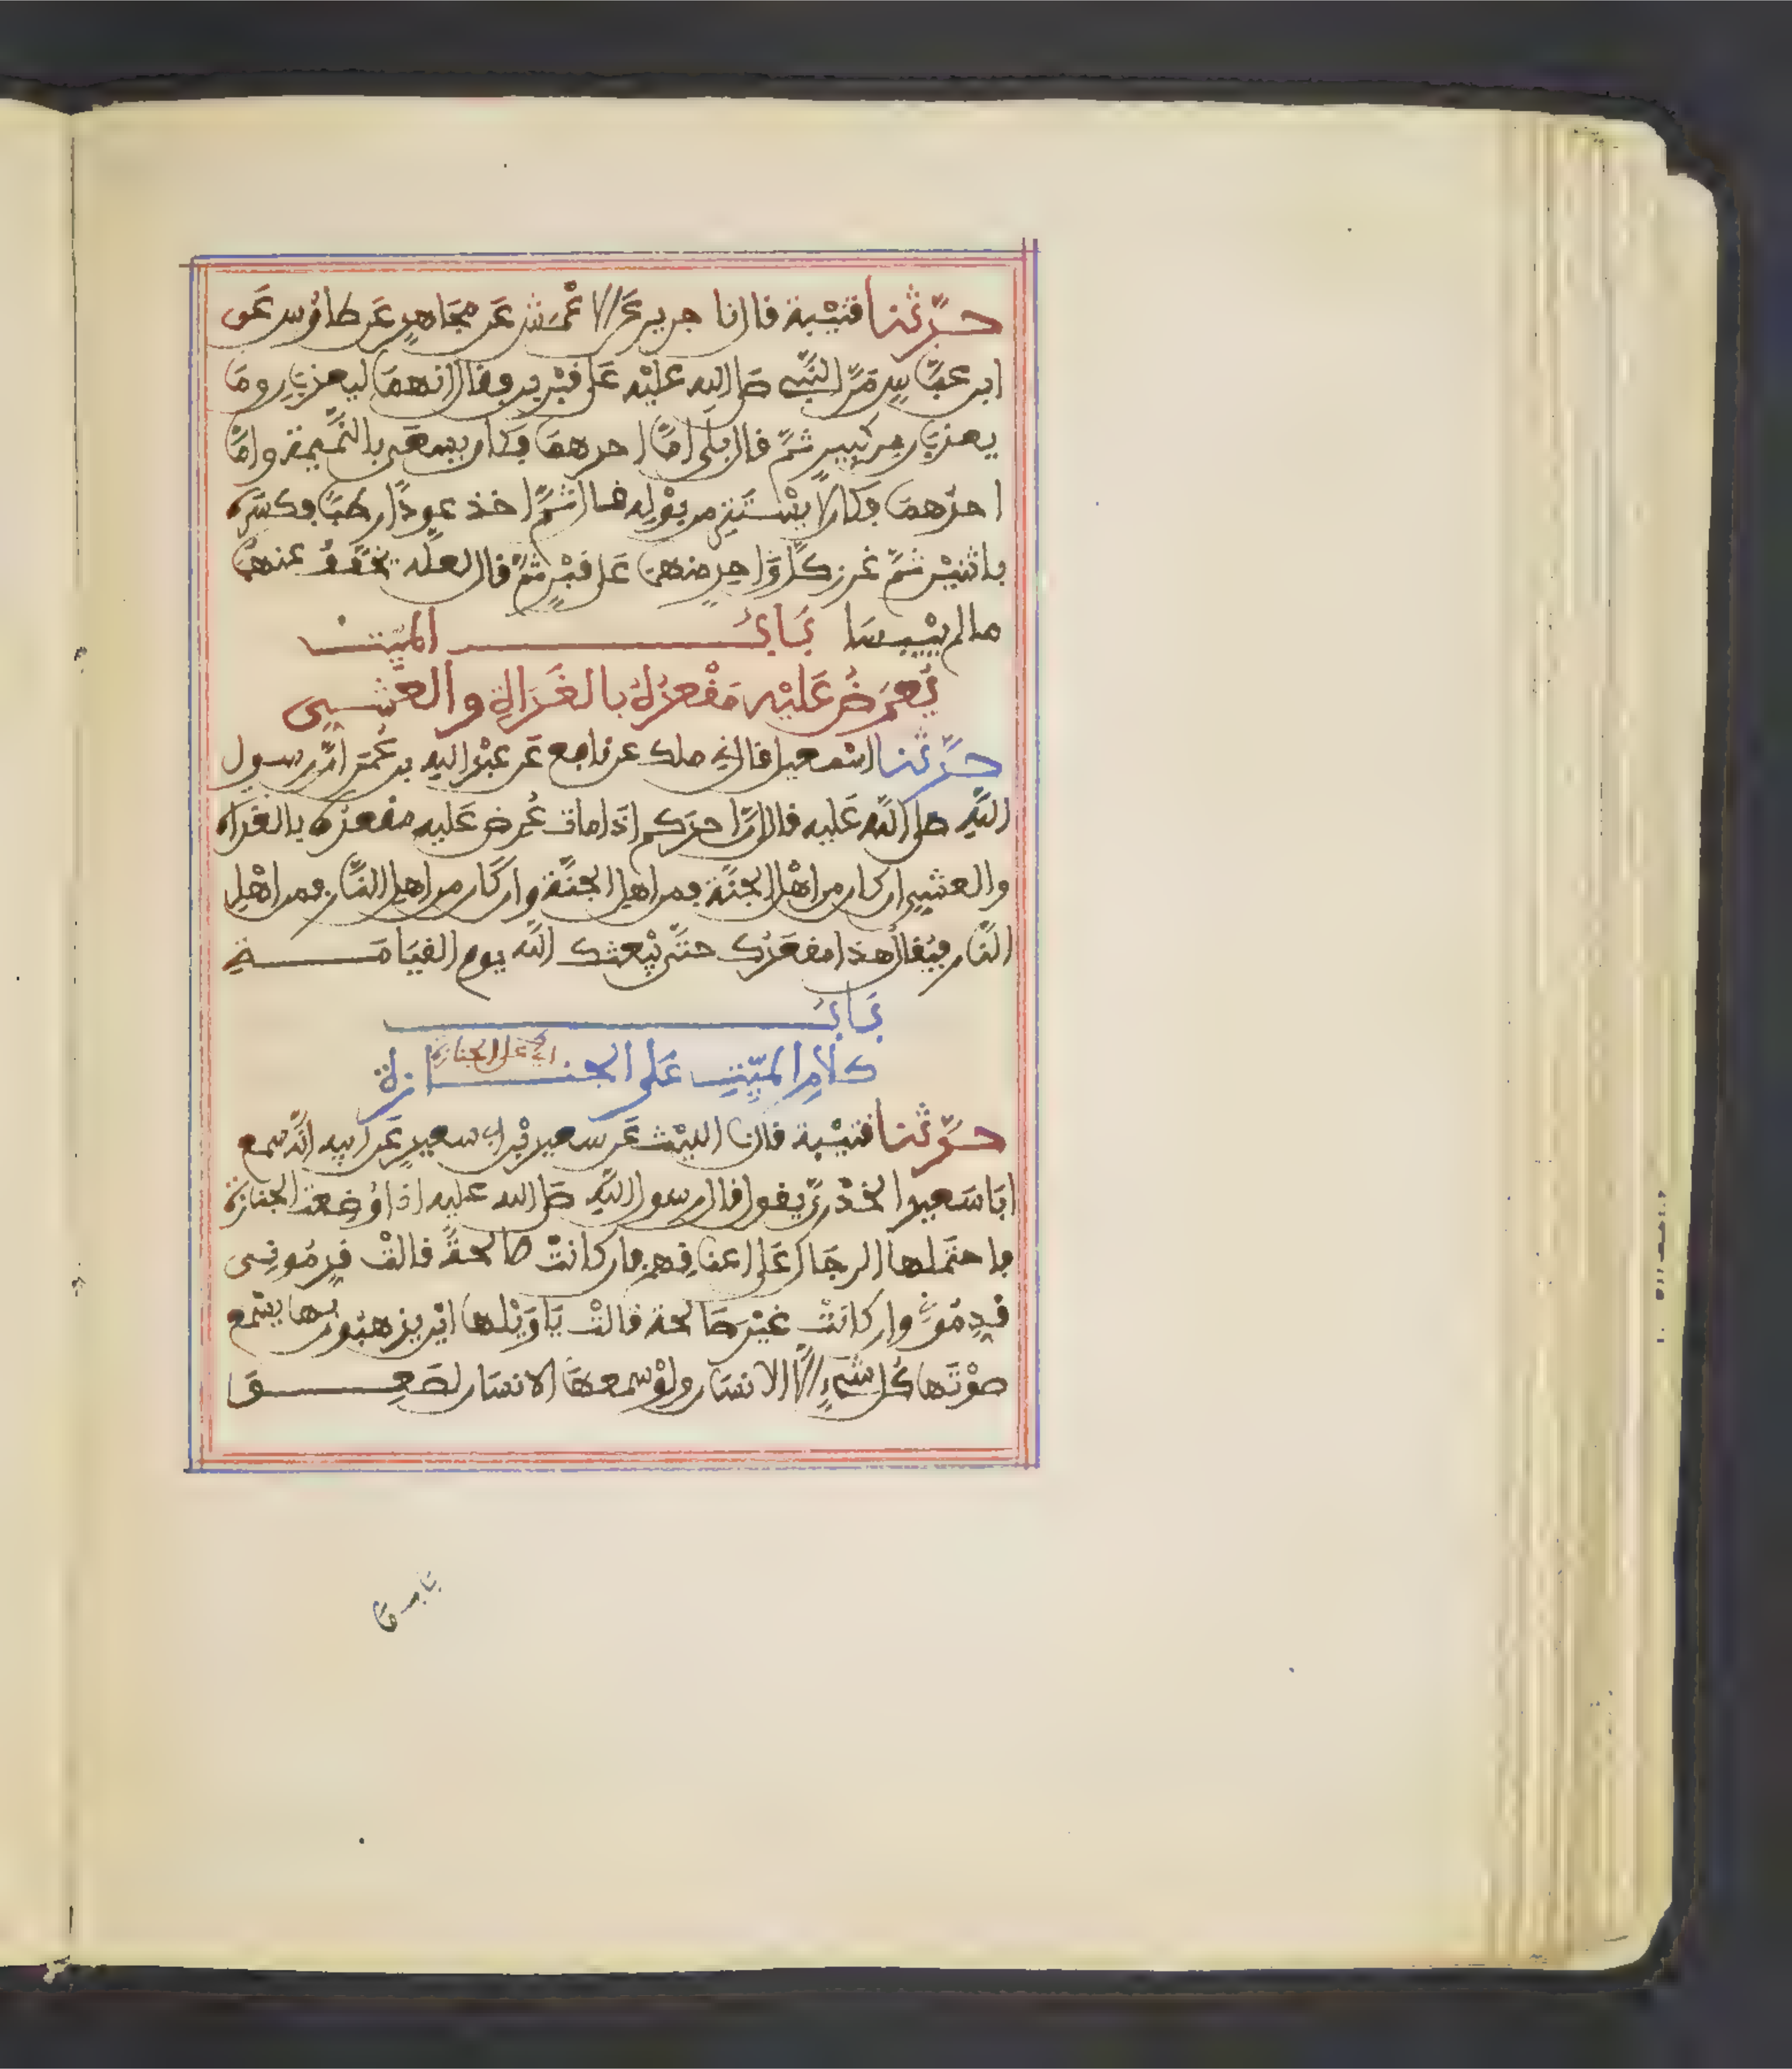 حدّثنا قتيْبة قال نا جرير عَن الاعْمَش عَن مجَاهدٍ عَن طاوُس عَن
ابن عبّاسٍ مَرَّ النّبي صلى الله عليْه عَلى قبْرين وقال انهمَا ليعذبَانِ ومَا
يعذبَان من كبِير ثمَّ قال بلَى امَّا احدهمَا فكان يسعَى بالنّمِيمة وامَّا
احدُهمَا فكان لا يسْتَتِر من بوْلِه قال ثمَّ اخذ عودًا رطبًا فكسَره
باثنيْن ثمَّ غرز كلَّ وَاحدٍ منهمَا عَلى قبْرٍ ثمَّ قال لعلّه يخفّفُ عنهمَا
ما لم ييْبسَا بَابُ الميّت
يُعرَضُ عَليْه مَقْعدُهُ بالغَدَاةِ والعَشِيى
حدّثنا اسْمعيل قال نى ملك عن نافع عَن عبْد الله بن عُمَر انّ رسول
اللهِ صلى الله عَليه قال انّ احدَكم اذَا مات عُرض عَليه مقعدُه بالغداة
والعشيى ان كان من اهْل الجنّة فمن اهل الجنّة وان كَان من اهل النّار فمن اهْل
النّار فيُقال هذا مقعَدُك حتّى يبْعثك الله يوم القيَامَةِ
بَابُ
كلامِ الميّتِ عَلى الجنازة
اى على الجنازة
حدّثنا قتيْبة قال نا الليْث عَن سعيد بْن ابى سعيدٍ عَن ابيه انّه سمع
ابَا سَعيد الخدْرىّ يقول قال رسول اللهِ صلى الله عليه اذا وُضعت الجنَازة
فاحتمَلها الرجَال عَلى اعناقِهم فان كانتْ صَالحةً قالتْ قدِمُونِى
قدِمُونِى وان كانَتْ غيْرَ صَالحة قالتْ يَا وَيْلها ايْن يذهبُون بها يسْمع
صوْتَها كُل شىْءٍ الّا الانسَان ولوْ سمعهَا الانسَان لصَعِقَ